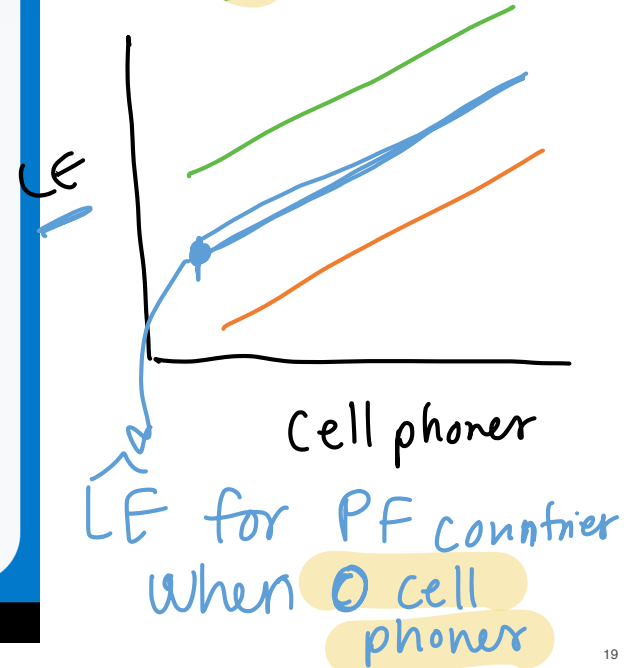 LE
Cell phones
LE for PF countries
when 0 cell
phones
19